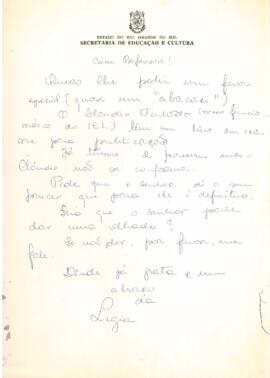 ESTADO DO RIO GRANDE DO SUL
SECRETARIA DE EDUCAÇÃO E CULTURA
Caro Professor!
Quero lhe pedir um favor
especial (quase um "abacaxi")
O Claudio (nosso funcio-
nário do IEL) tem um livro em
para publicação
Já temos 2 pareceres mas
Cláudio não se conforma.
Pede que o senhor dê o seu
parecer que para ele é definitivo.
Será que o senhor pode
dar uma olhada?
Se não der, por favor, me
fale.
Desde já grata e um
abraço
da
Ligia